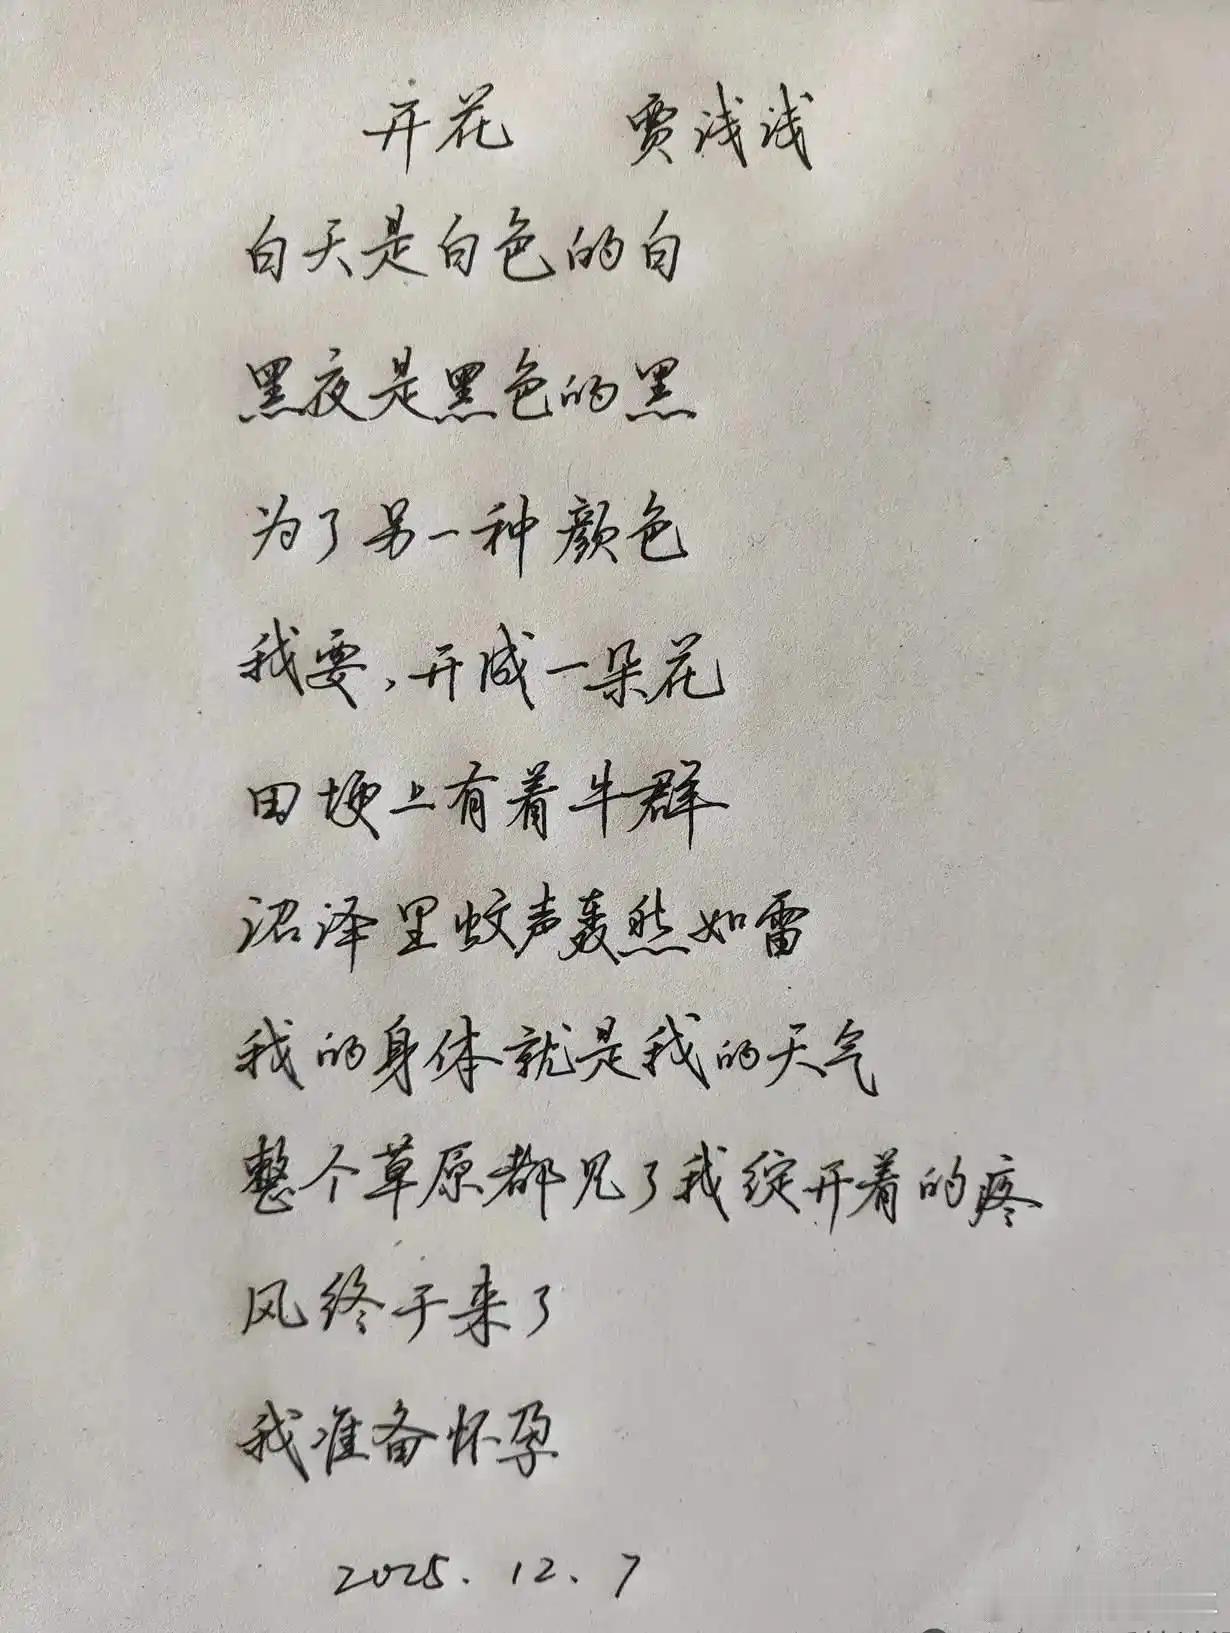 开花 贾浅浅
白天是白色的白
黑夜是黑色的黑
为了另一种颜色
我要,开成一朵花
田埂上有着牛群
沼泽里蚊声轰然如雷
我的身体就是我的天气
整个草原都见了我绽开着的疼
风终于来了
我准备怀孕
2025.12.7